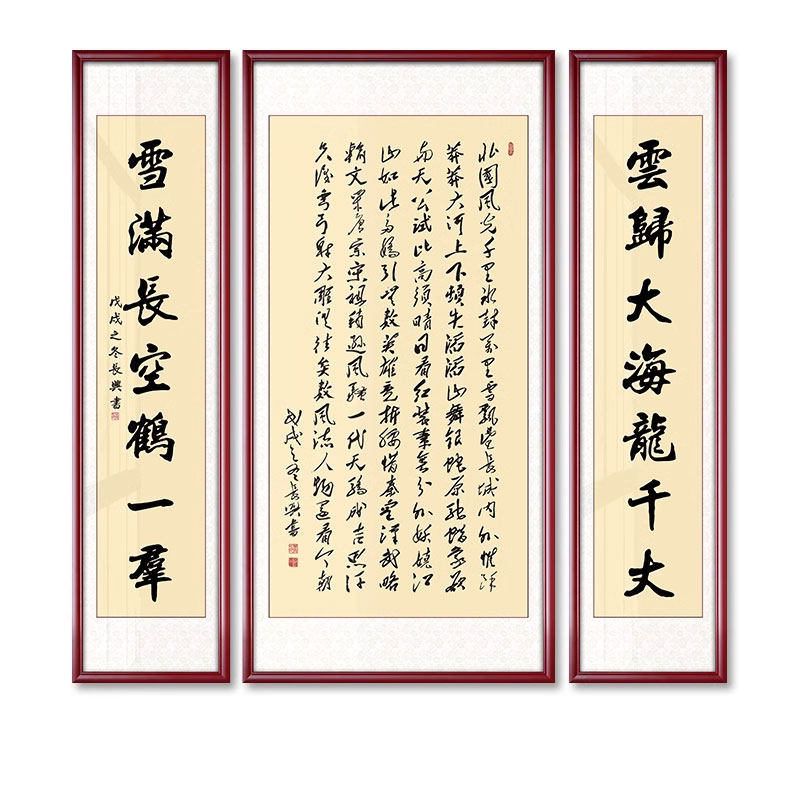 雲歸大海龍千丈
北國风光千里冰封萬里雪飘望長城内外惟餘
莽莽大河上下頓失滔滔山舞銀蛇原馳蠟象欲
與天公試比高須晴日看红裝素裹分外妖嬈江
山如此多嬌引無數英雄競折腰惜秦皇漢武略
輸文采唐宗宋祖稍遜风騷一代天驕成吉思汗
只識彎弓射大雕俱往矣數风流人物還看今朝
戊戌之冬長興書
雪滿長空鶴一羣
戊戌之冬長興書